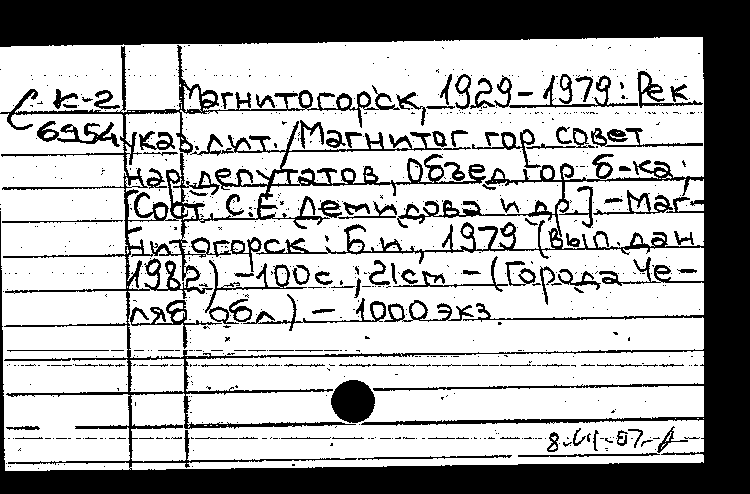 К-2 Магнитогорск, 1929-1979: Рек.
6954 указ. лит. / Магнитог. гор. совет
нар. депутатов, Объед. гор. б-ка;
[Сост. С.Е. Демидова и др.].-Маг-
нитогорск: Б.и., 1979 (вып. дан.
1982) -100 с.; 21 cm - (Города Че-
ляб. обл.) - 1000 экз.